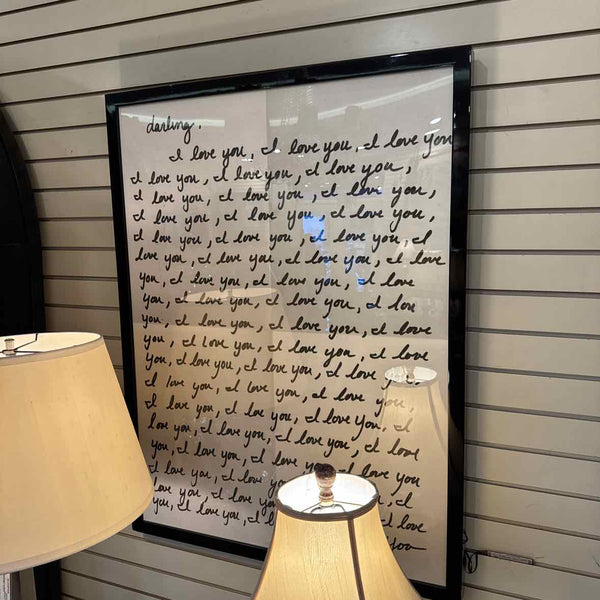 darling.
I love you, I love you, I love you
I love you, I love you, I love you,
I love you, I love you, I love you,
I love you, I love you, I love you,
I love you, I love you, I love you, I
love you, I love you, I love you, I love
you, I love you, I love you, I love
you, I love you, I love you, I love
you, I love you, I love you, I love
you, I love you, I love you, I love
you, I love you, I love you, I love
I love you, I love you, I love you,
I love you, I love you, I love you, I
love you, I love you, I love you, I love
you, I love you, I love you, I love you
I love you, I love
love you, I love you, I
you, I love you, I love
you